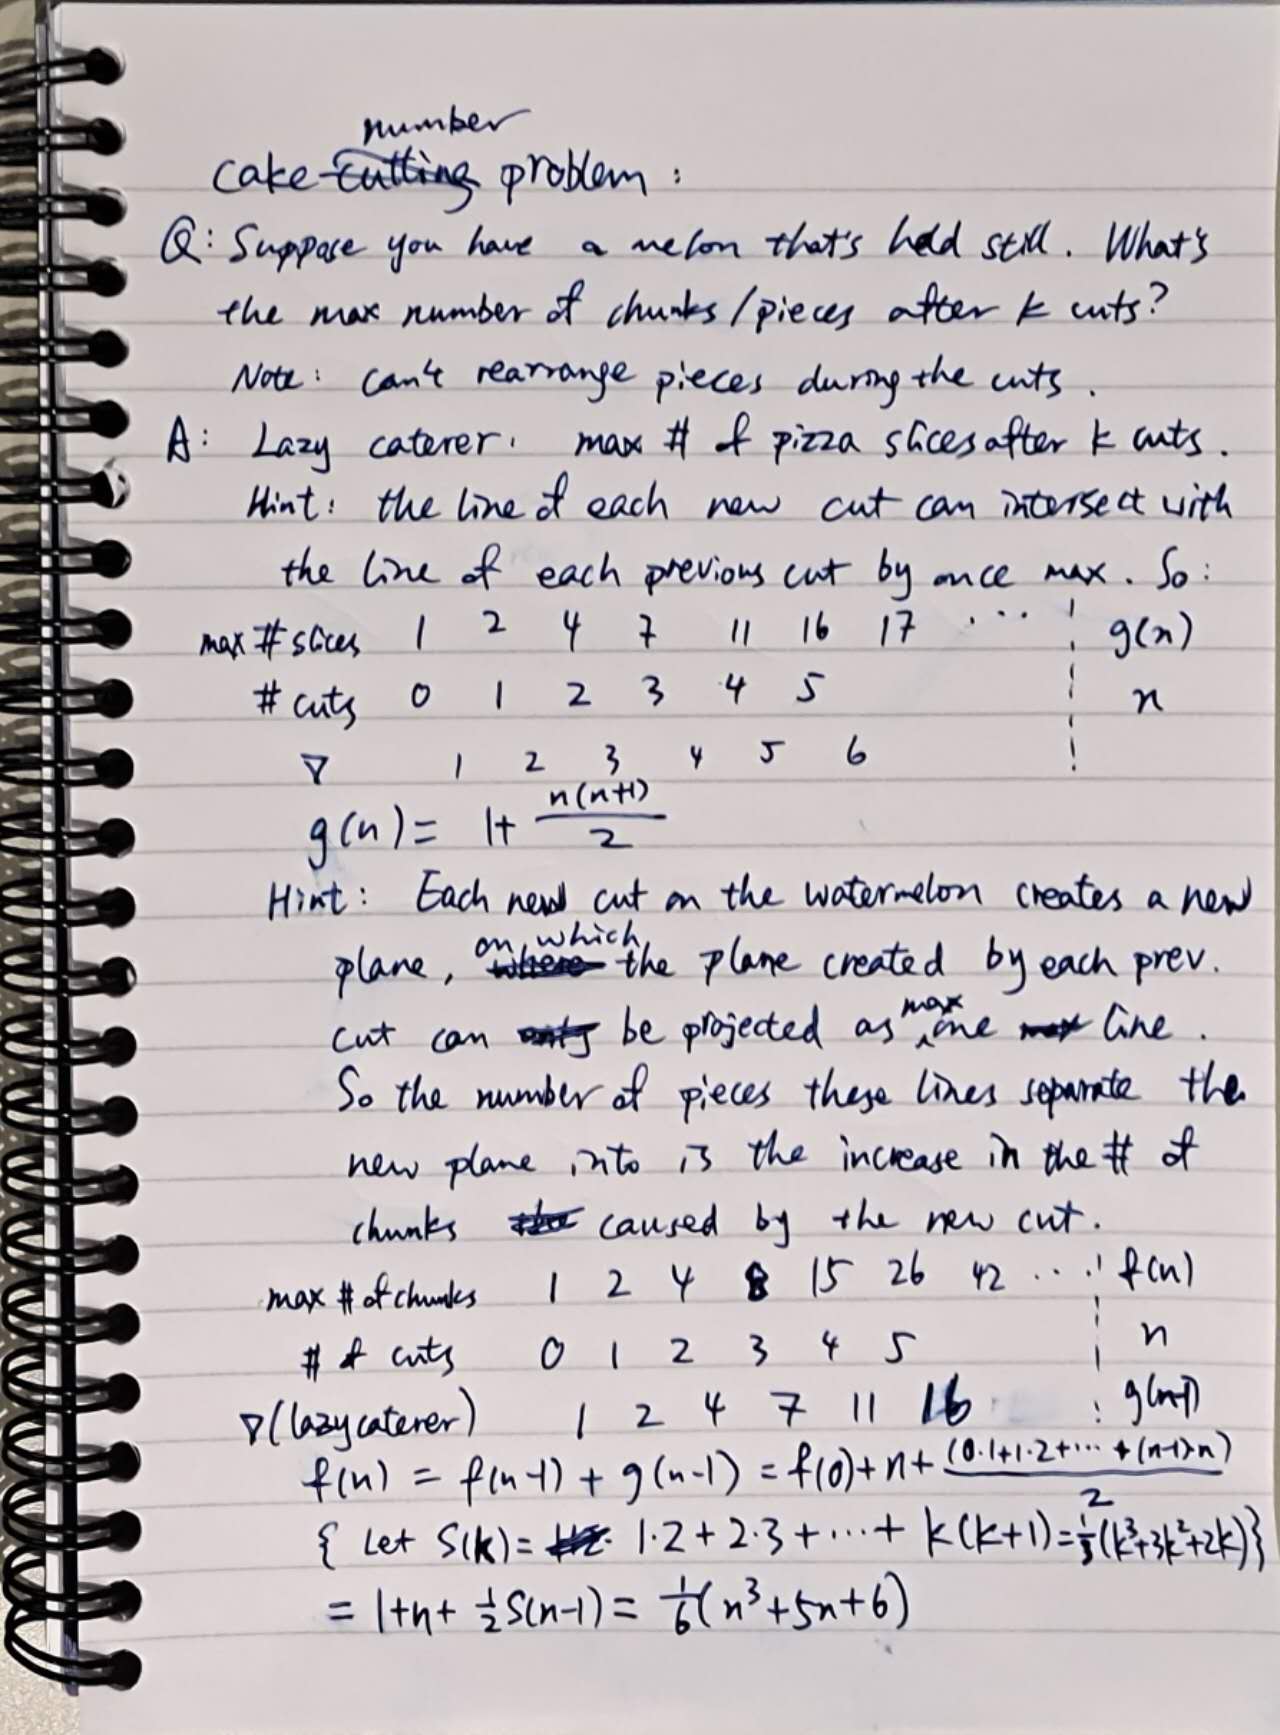 number
cake cutting problem :
Q: Suppose you have a melon that's held still. What's
the max number of chunks/pieces after k cuts?
Note: can't rearrange pieces during the cuts.
A: Lazy caterer. max # of pizza slices after k cuts.
Hint: the line of each new cut can intersect with
the line of each previous cut by once max. So:
max # slices 1 2 4 7 11 16 17 ... g(n)
# cuts 0 1 2 3 4 5 n
∇ 1 2 3 4 5 6
g(n) = 1+ n(n+1)/2
Hint: Each new cut on the watermelon creates a new
on which
plane, where the plane created by each prev.
max
cut can only be projected as ^ one max line.
So the number of pieces these lines separate the
new plane into is the increase in the # of
chunks the caused by the new cut.
max # of chunks 1 2 4 8 15 26 42 ... f(n)
# of cuts 0 1 2 3 4 5 n
∇(lazy caterer) 1 2 4 7 11 16 g(n-1)
f(n) = f(n-1) + g(n-1) = f(0)+n+ (0·1+1·2+...+(n-1)·n)/2
{ Let S(k)= 1·2+2·3+...+ k(k+1)=1/3(k³+3k²+2k)}
= 1+n+ 1/2 S(n-1) = 1/6(n³+5n+6)